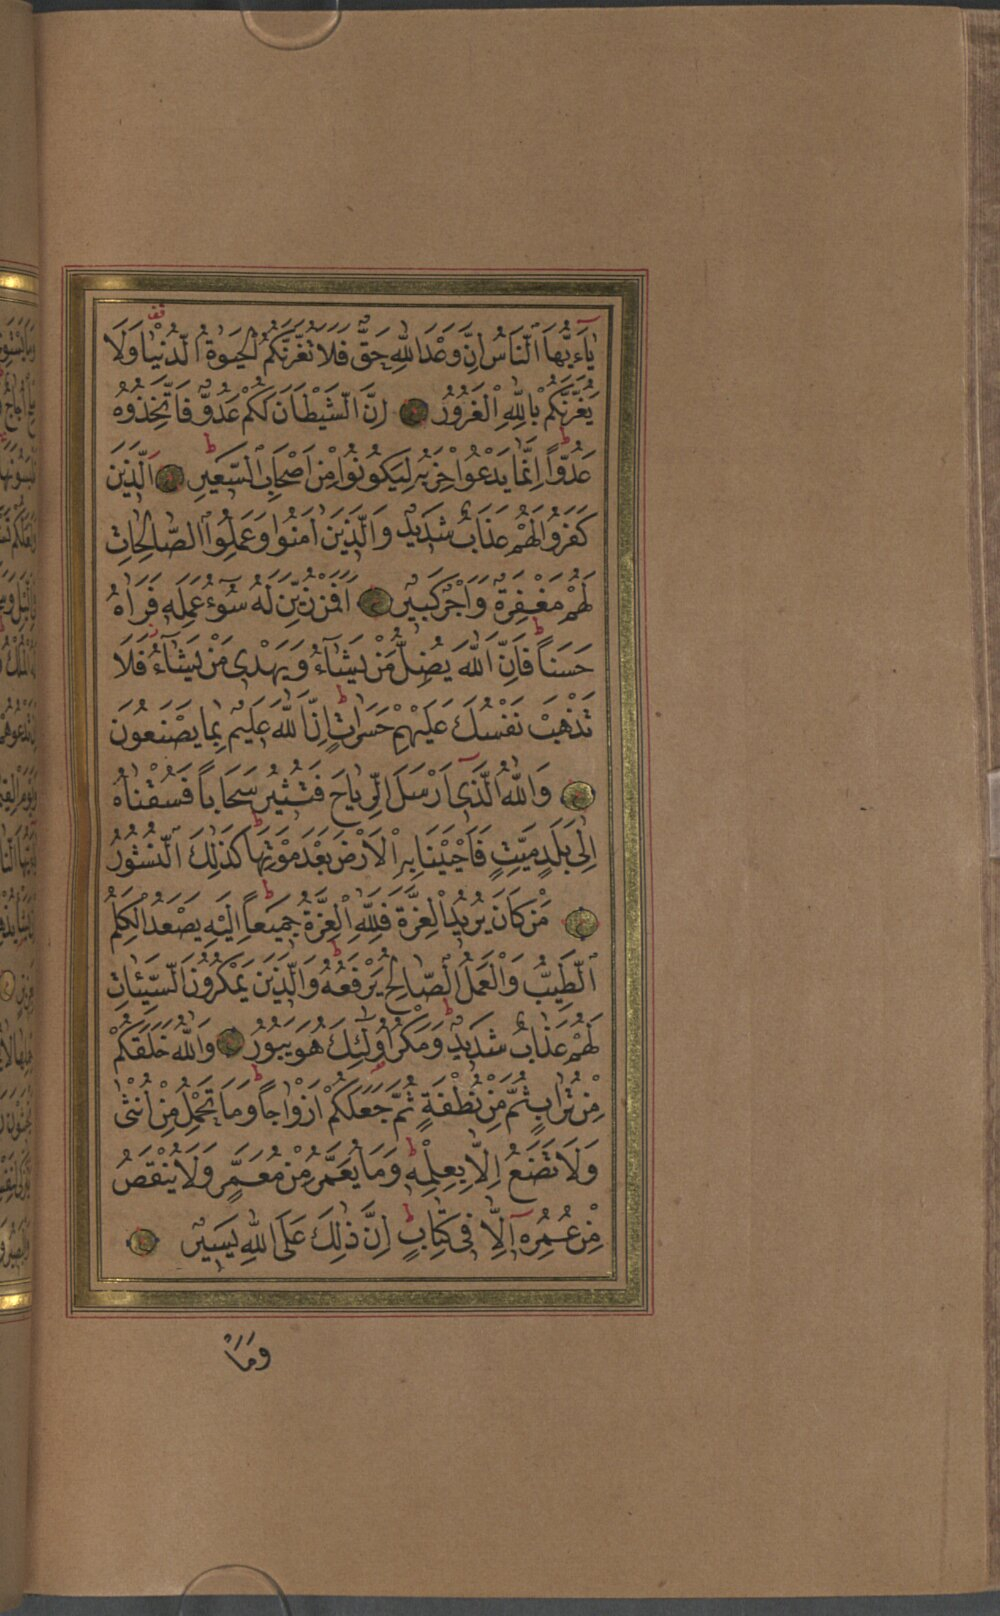 يَاءَيُّهَا النَّاسُ اِنَّ وَعْدَ اللّٰهِ حَقٌّ فَلَا تَغُرَّنَّكُمُ الْحَيٰوةُ الدُّنْيَا وَلَا
يَغُرَّنَّكُمْ بِاللّٰهِ الْغَرُورُ اِنَّ الشَّيْطَانَ لَكُمْ عَدُوٌّ فَاتَّخِذُوهُ
عَدُوًّا اِنَّمَا يَدْعُوا حِزْبَهُ لِيَكُونُوا مِنْ اَصْحَابِ السَّعِيرِ اَلَّذِينَ
كَفَرُوا لَهُمْ عَذَابٌ شَدِيدٌ وَالَّذِينَ اٰمَنُوا وَعَمِلُوا الصَّالِحَاتِ
لَهُمْ مَغْفِرَةٌ وَاَجْرٌ كَبِيرٌ اَفَمَنْ زُيِّنَ لَهُ سُوءُ عَمَلِهِ فَرَاٰهُ
حَسَنًا فَاِنَّ اللّٰهَ يُضِلُّ مَنْ يَشَاءُ وَيَهْدِى مَنْ يَشَاءُ فَلَا
تَذْهَبْ نَفْسُكَ عَلَيْهِمْ حَسَرَاتٍ اِنَّ اللّٰهَ عَلِيمٌ بِمَا يَصْنَعُونَ
وَاللّٰهُ الَّذِى اَرْسَلَ الرِّيَاحَ فَتُثِيرُ سَحَابًا فَسُقْنَاهُ
اِلٰى بَلَدٍ مَيِّتٍ فَاَحْيَيْنَا بِهِ الْاَرْضَ بَعْدَ مَوْتِهَا كَذٰلِكَ النُّشُورُ
مَنْ كَانَ يُرِيدُ الْعِزَّةَ فَلِلّٰهِ الْعِزَّةُ جَمِيعًا اِلَيْهِ يَصْعَدُ الْكَلِمُ
الطَّيِّبُ وَالْعَمَلُ الصَّالِحُ يَرْفَعُهُ وَالَّذِينَ يَمْكُرُونَ السَّيِّئَاتِ
لَهُمْ عَذَابٌ شَدِيدٌ وَمَكْرُ اُولٰئِكَ هُوَ يَبُورُ وَاللّٰهُ خَلَقَكُمْ
مِنْ تُرَابٍ ثُمَّ مِنْ نُطْفَةٍ ثُمَّ جَعَلَكُمْ اَزْوَاجًا وَمَا تَحْمِلُ مِنْ اُنْثٰى
وَلَا تَضَعُ اِلَّا بِعِلْمِهِ وَمَا يُعَمَّرُ مِنْ مُعَمَّرٍ وَلَا يُنْقَصُ
مِنْ عُمُرِهِ اِلَّا فِى كِتَابٍ اِنَّ ذٰلِكَ عَلَى اللّٰهِ يَسِيرٌ
وَمَا